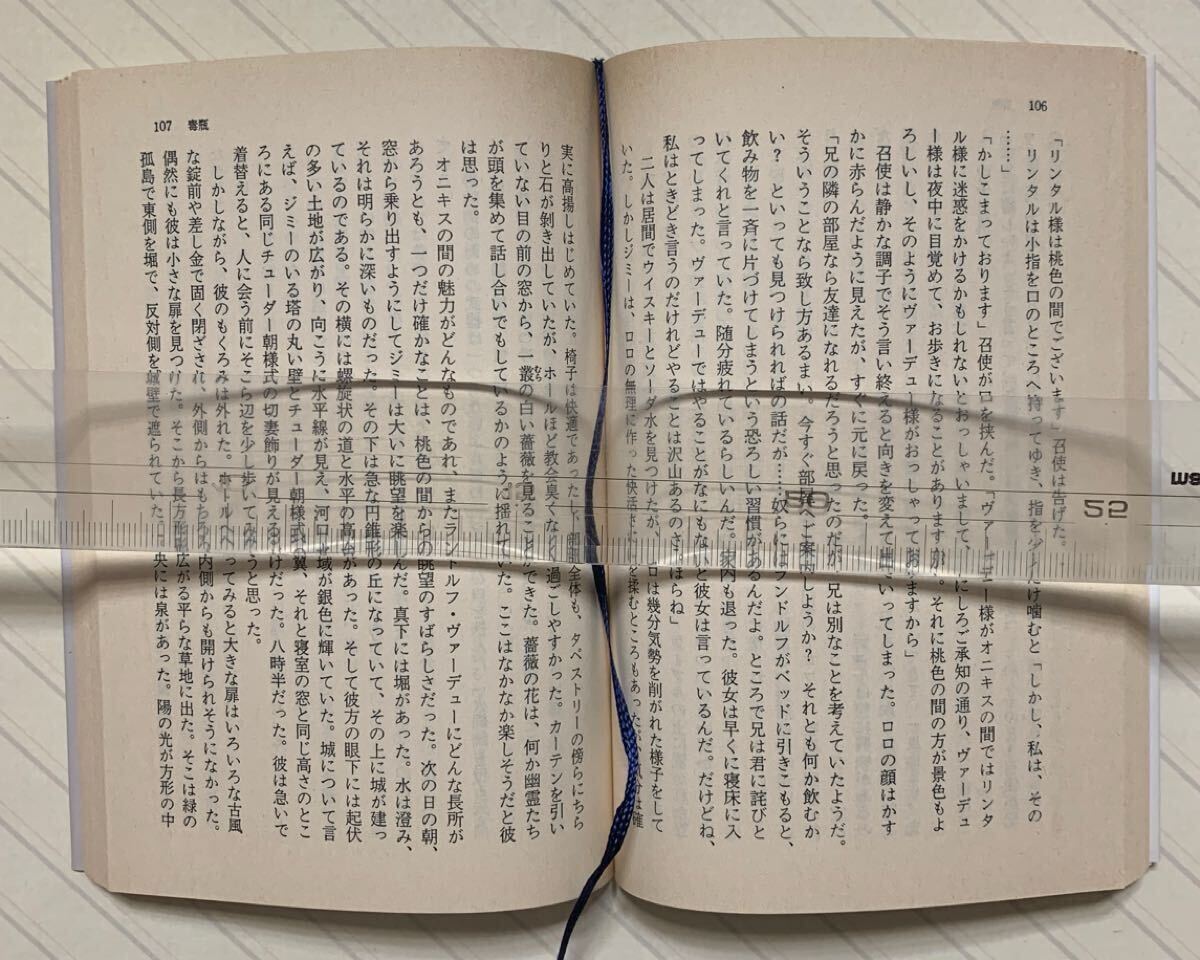 106
「リンタル様は桃色の間でございます」召使は告げた。
リンタルは小指を口のところへ持ってゆき、指を少しだけ噛むと「しかし、私は、その
……」
「かしこまっております」召使が口を挟んだ。「ヴァーデュー様がオニキスの間ではリンタ
ル様に迷惑をかけるかもしれないとおっしゃいまして、なにしろご承知の通り、ヴァーデュ
ー様は夜中に目覚めて、お歩きになることがありますが。それに桃色の間の方が景色もよ
ろしいし、そのようにヴァーデュー様がおっしゃっておりますから」
召使は静かな調子でそう言い終えると向きを変えて出ていってしまった。ロロの顔はかす
かに赤らんだように見えたが、すぐに元に戻った。
「兄の隣の部屋なら友達になれるだろうと思ったのだが、兄は別なことを考えていたようだ。
そういうことなら致し方あるまい。今すぐ部屋へご案内しようか? それとも何か飲むか
い? といっても見つけられればの話だが……奴らにはランドルフがベッドに引きこもると、
飲み物を一斉に片づけてしまうという恐ろしい習慣があるんだよ。ところで兄は君に詫びと
いてくれと言っていた。随分疲れているらしいんだ。家内も退った。彼女は早くに寝床に入
ってしまった。ヴァーデューではやることがなにもないと彼女は言っているんだ。だけどね、
私はときどき言うのだけれどやることは沢山あるのさ、ほらね」
二人は居間でウイスキーとソーダ水を見つけたが、ロロは幾分気勢を削がれた様子をして
いた。しかしジミーは、ロロの無理に作った快活さに気を揉むところもあったが、
107 毒瓶
実に高揚しはじめていた。椅子は快適であったし、部屋全体も、タペストリーの傍らにちら
りと石が剥き出していたが、ホールほど教会臭くなく、過ごしやすかった。カーテンを引い
ていない目の前の窓から、一叢の白い薔薇を見ることができた。薔薇の花は、何か幽霊たち
むら
が頭を集めて話し合いでもしているかのように揺れていた。ここはなかなか楽しそうだと彼
は思った。
オニキスの間の魅力がどんなものであれ、またランドルフ・ヴァーデューにどんな長所が
あろうとも、一つだけ確かなことは、桃色の間からの眺望のすばらしさだった。次の日の朝、
窓から乗り出すようにしてジミーは大いに眺望を楽しんだ。真下には堀があった。水は澄み、
それは明らかに深いものだった。その下は急な円錐形の丘になっていて、その上に城が建っ
ているのである。その横には螺旋状の道と水平の高台があった。そして彼方の眼下には起伏
の多い土地が広がり、向こうに水平線が見え、河口水域が銀色に輝いていた。城について言
えば、ジミーのいる塔の丸い壁とチューダー朝様式の翼、それと寝室の窓と同じ高さのとこ
ろにある同じチューダー朝様式の切妻飾りが見えるだけだった。八時半だった。彼は急いで
着替えると、人に会う前にそこら辺を少し歩いてみようと思った。
しかしながら、彼のもくろみは外れた。ホールへ
ってみると大きな扉はいろいろな古風
な錠前や差し金で固く閉ざされ、外側からはもちろん内側からも開けられそうになかった。
偶然にも彼は小さな扉を見つけた。そこから長方形
広がる平らな草地に出た。そこは緑の
孤島で東側を堀で、反対側を城壁で遮られていた。中央には泉があった。陽の光が方形の中
50
52